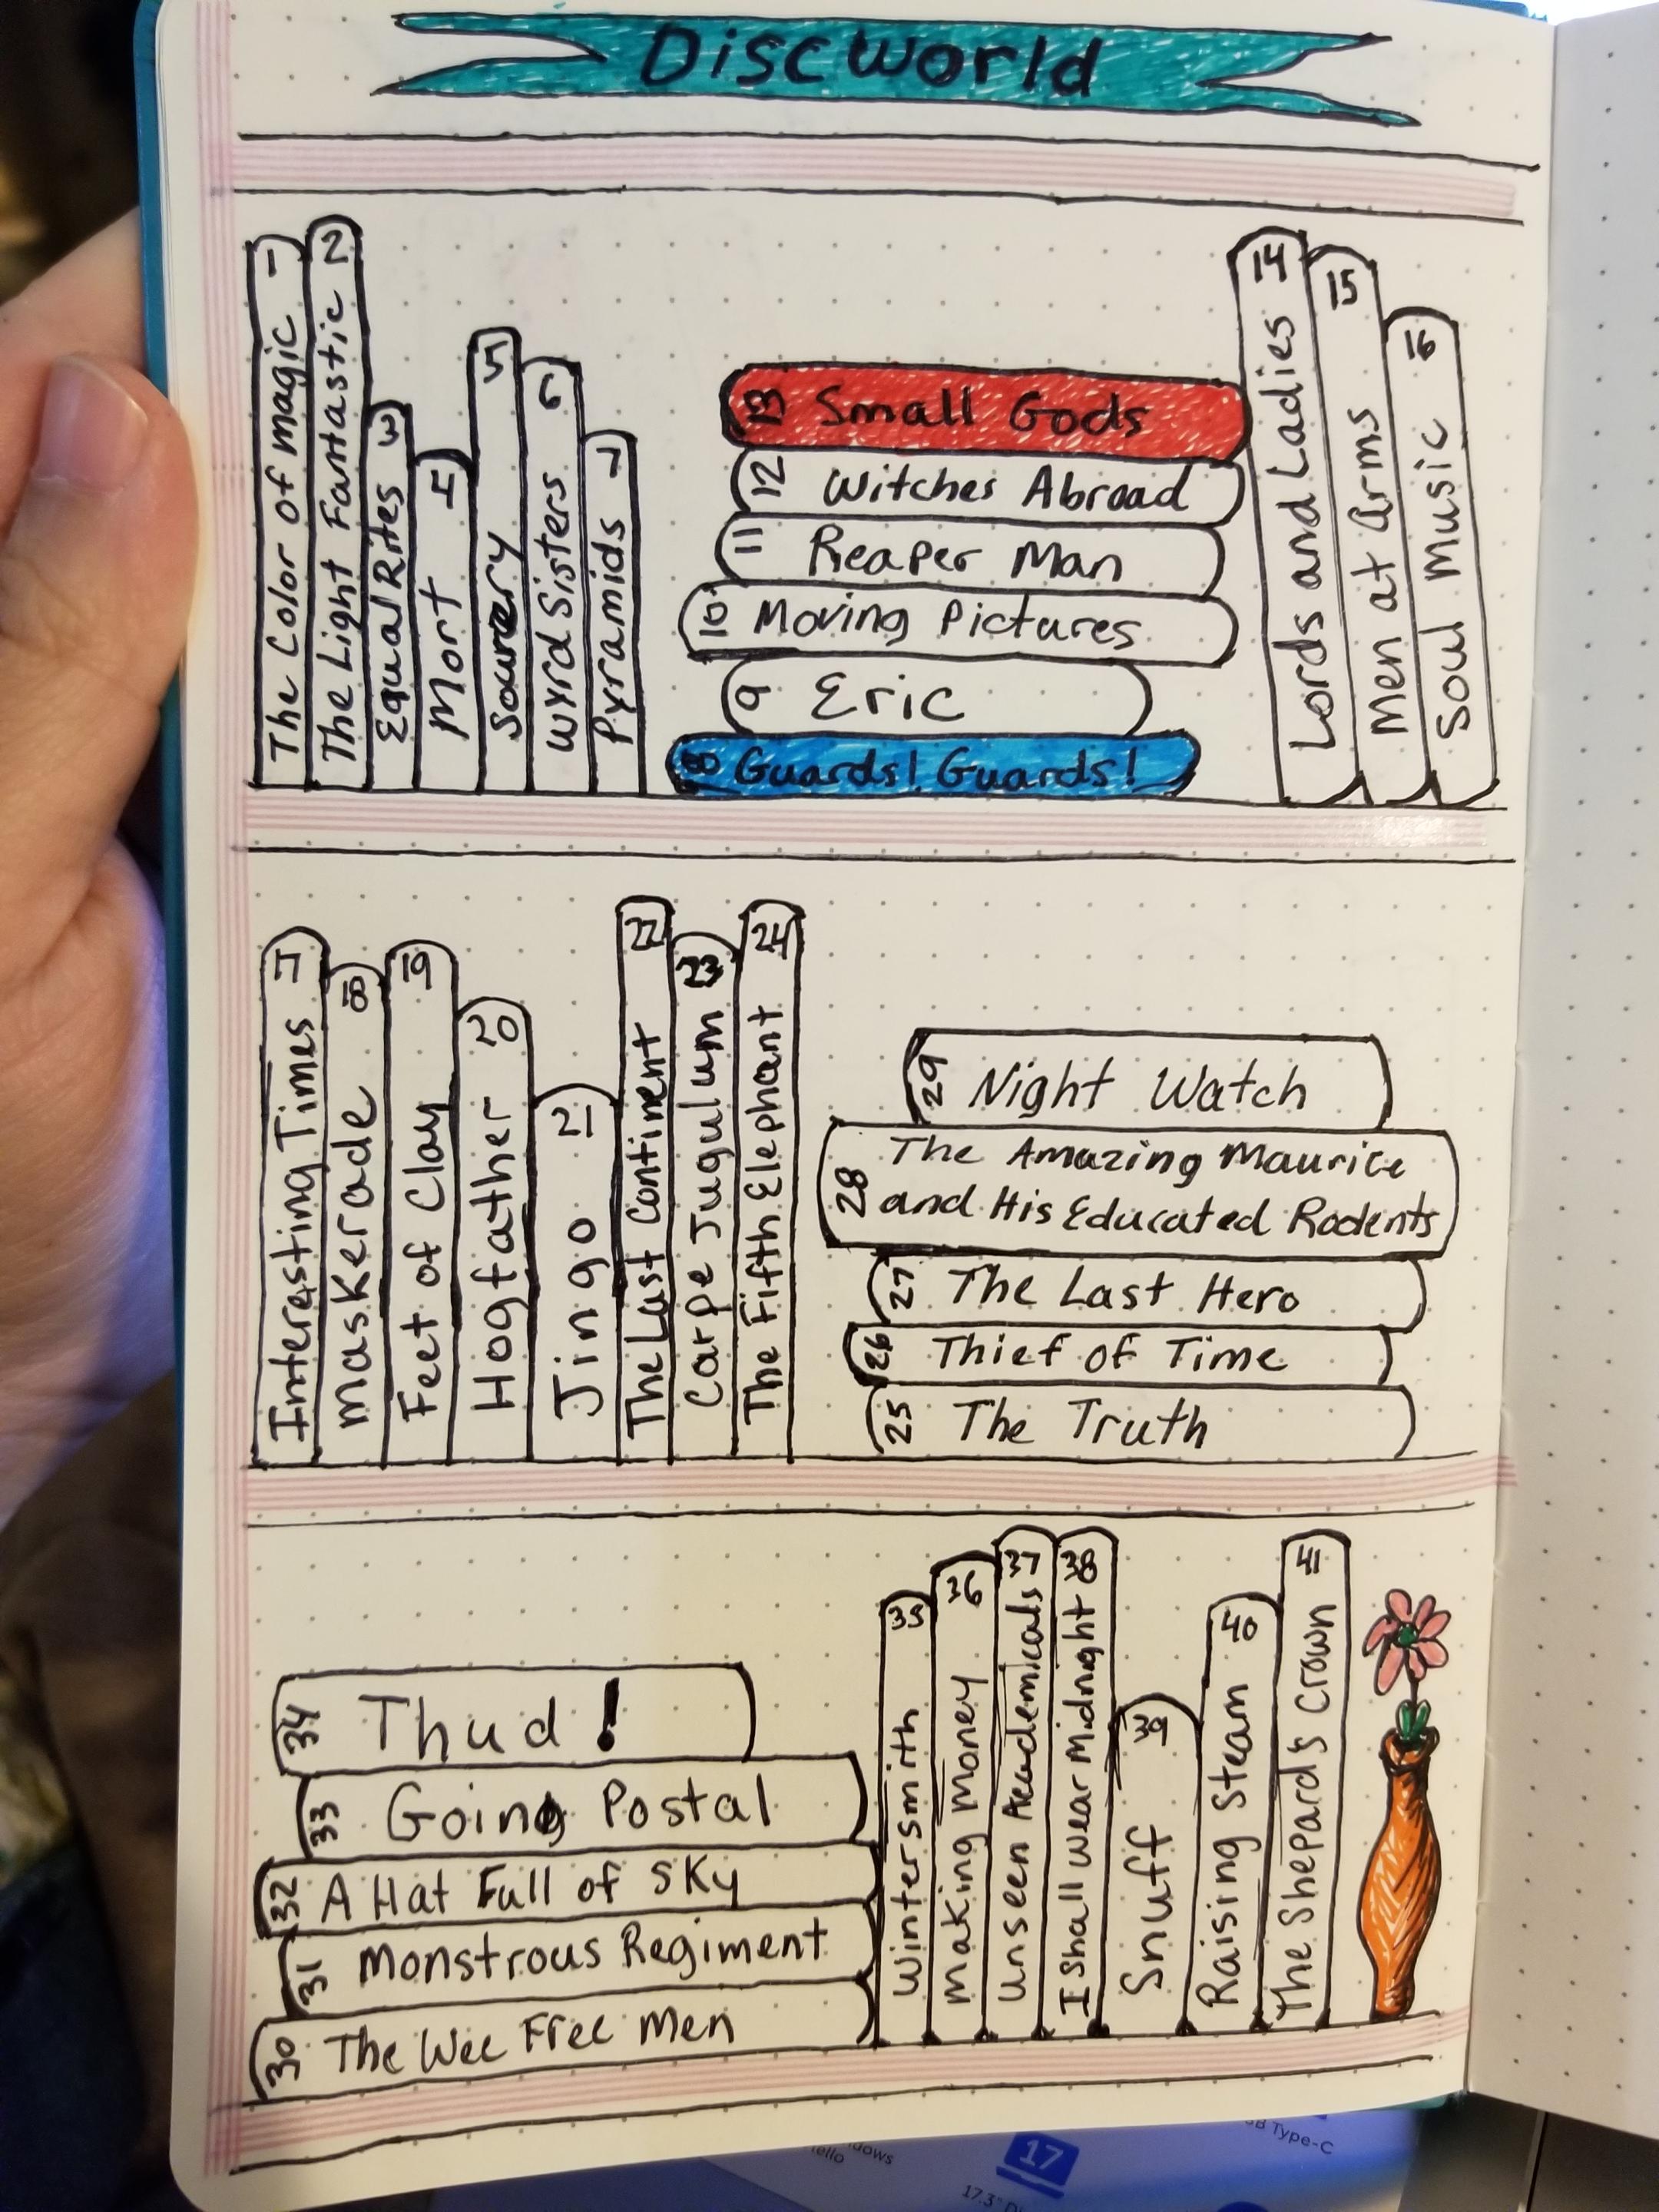 Discworld
The Color of magic 1
The Light Fantastic 2
Equal Rites 3
Mort 4
Sourcery 5
Wyrd Sisters 6
Pyramids 7
13 Small Gods
12 Witches Abroad
11 Reaper Man
10 Moving Pictures
9 Eric
8 Guards! Guards!
Lords and Ladies 14
Men at Arms 15
Soul Music 16
Interesting Times 17
Maskerade 18
Feet of Clay 19
Hogfather 20
Jingo 21
The Last Continent 22
Carpe Jugulum 23
The Fifth Elephant 24
29 Night Watch
28 The Amazing Maurice
and His Educated Rodents
27 The Last Hero
26 Thief of Time
25 The Truth
34 Thud!
33 Going Postal
32 A Hat Full of Sky
31 Monstrous Regiment
30 The Wee Free Men
Wintersmith 35
Making Money 36
Unseen Academicals 37
I Shall wear Midnight 38
Snuff 39
Raising Steam 40
The Shepard's Crown 41
17
17.3"
Type-C